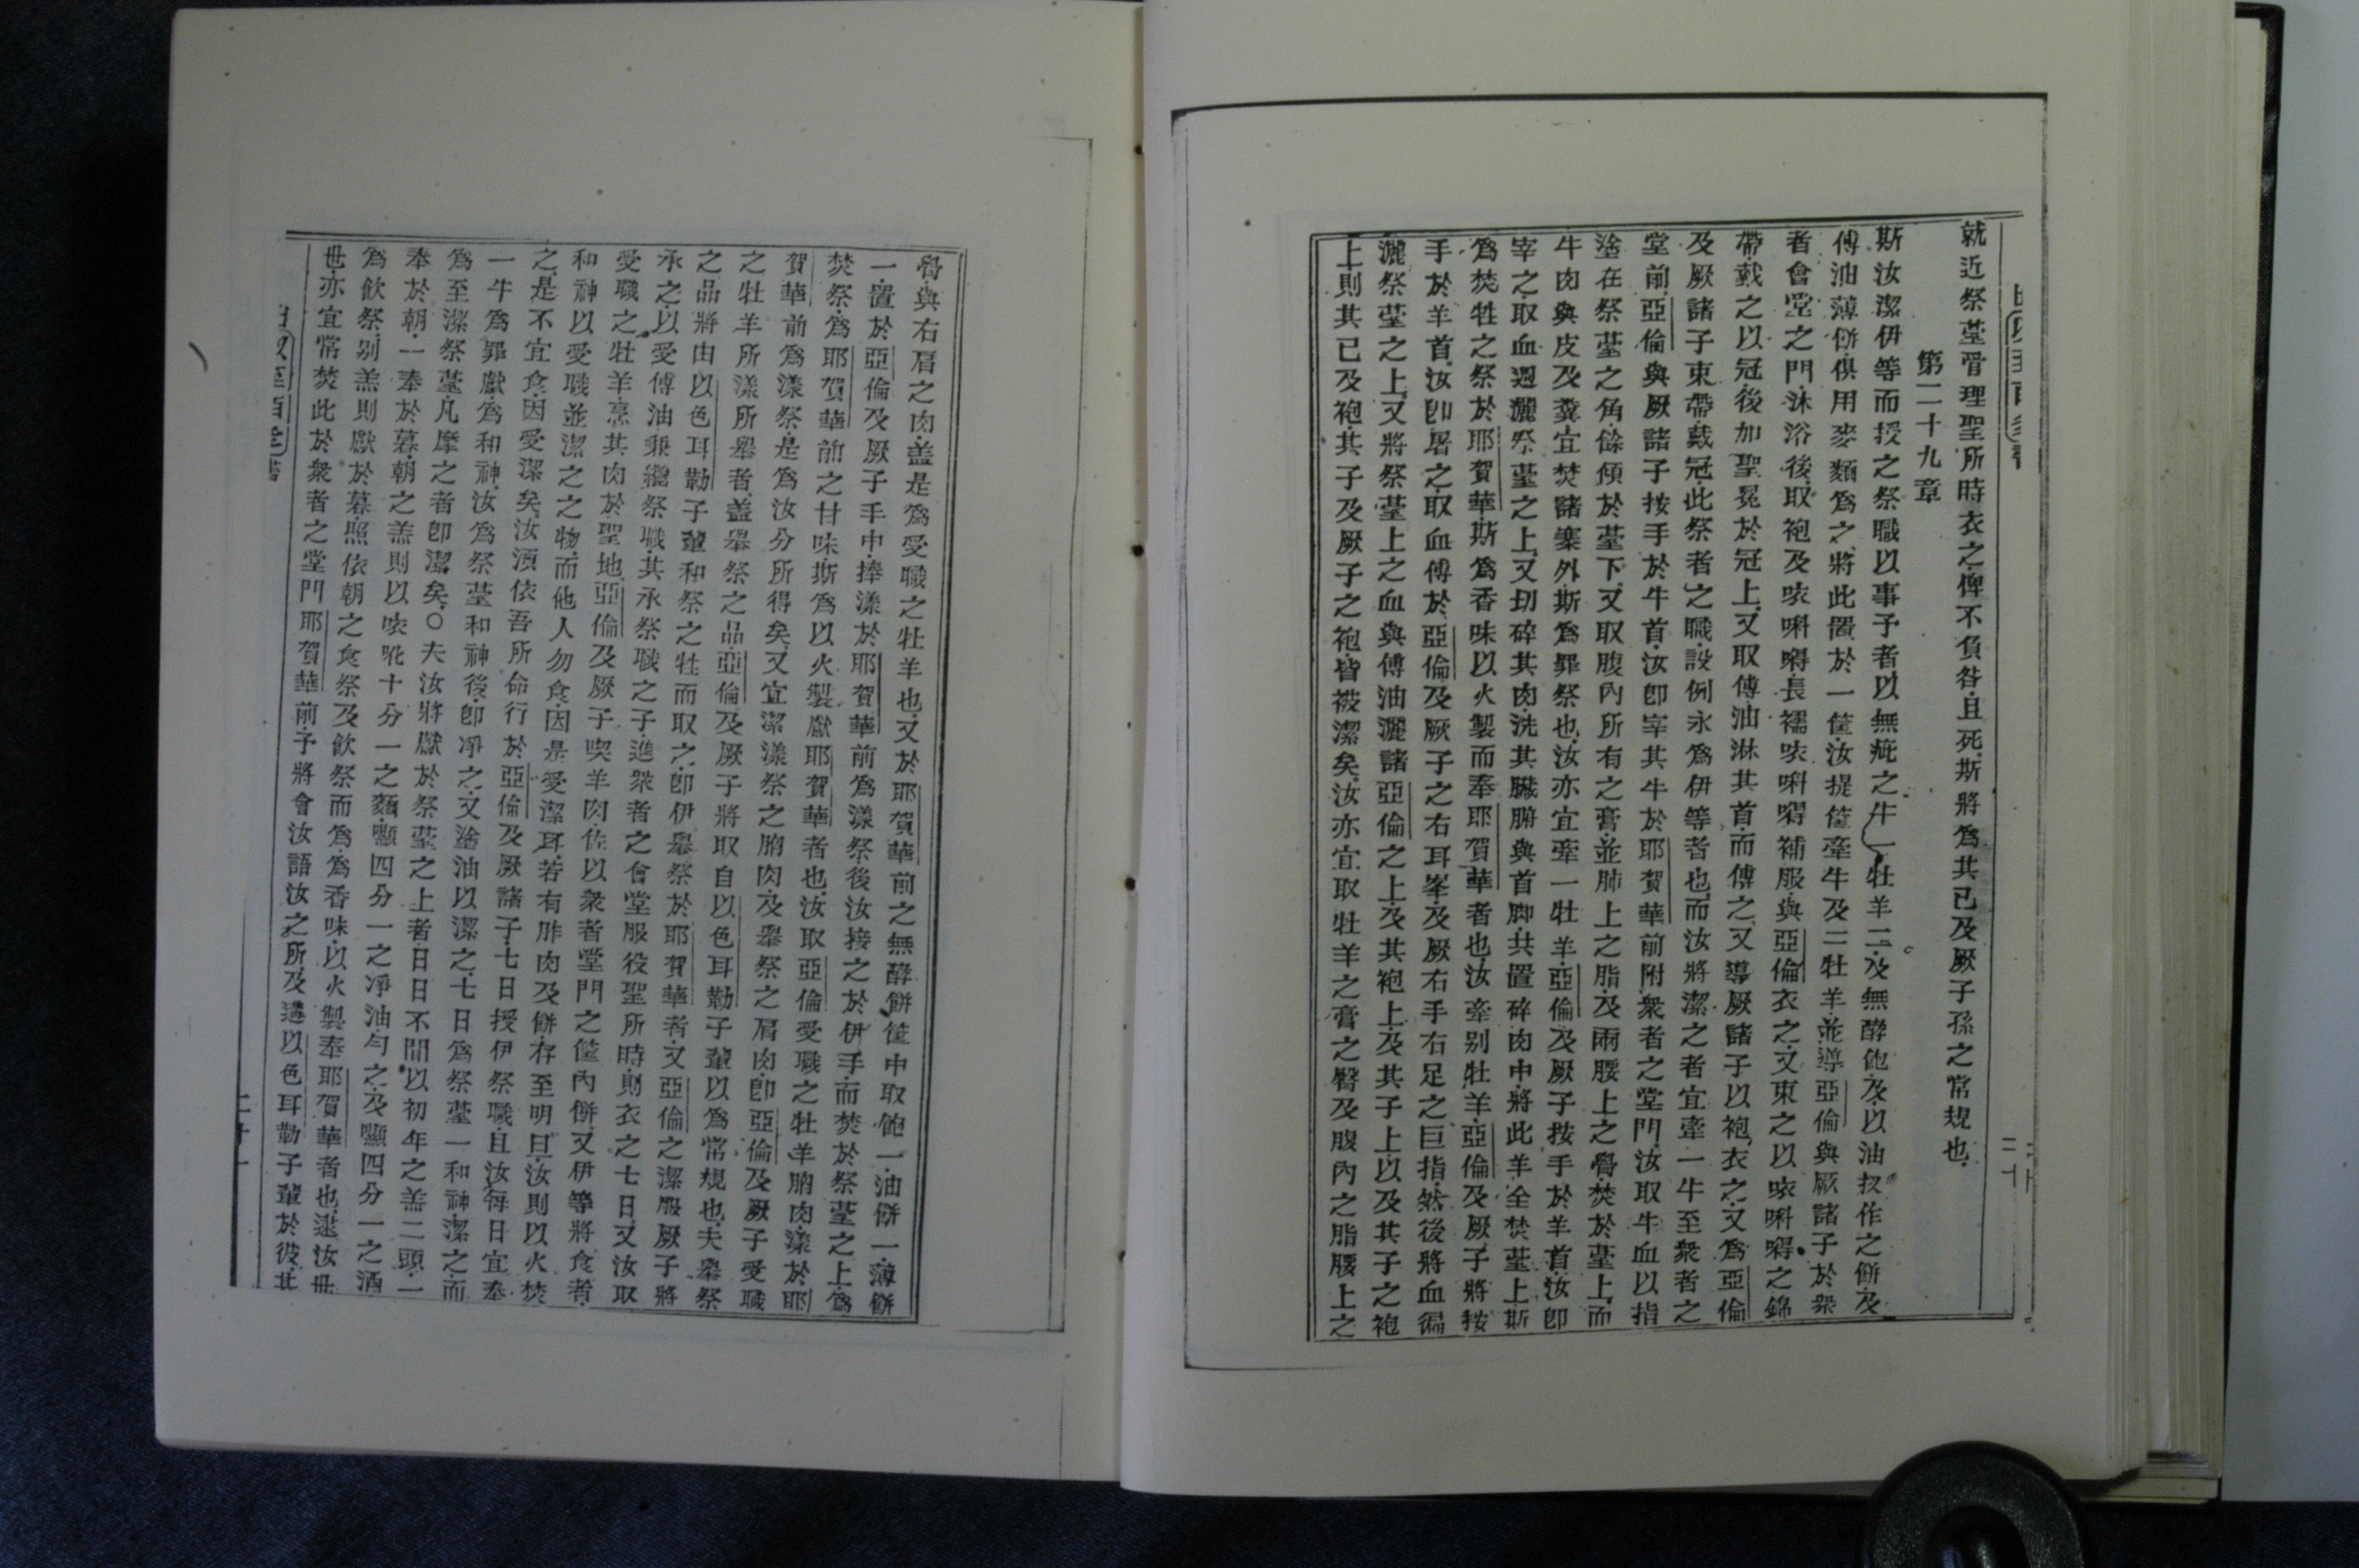 就近祭壇管理聖所時衣之俾不負咎且死斯將爲其己及厥子孫之常規也
第二十九章
斯汝潔伊等而授之祭職以事予者以無疵之牛一牡羊二及無酵飽及以油扠作之餅及
傅油薄餅俱用麥麵爲之將此置於一筐汝提筐牽牛及二牡羊並導亞倫與厥諸子於衆
者會堂之門沐浴後取袍及咴唎㗭長襦咴唎㗭補服與亞倫衣之又束之以咴唎㗭之錦
帶戴之以冠後加聖冕於冠上又取傅油淋其首而傅之又導厥諸子以袍衣之又爲亞倫
及厥諸子束帶戴冠此祭者之職設例永爲伊等者也而汝將潔之者宜牽一牛至衆者之
堂前亞倫與厥諸子按手於牛首汝卽宰其牛於耶賀華前附衆者之堂門汝取牛血以指
塗在祭壇之角餘傾於壇下又取腹內所有之膏並肺上之脂及兩腰上之膋焚於壇上而
牛肉與皮及糞宜焚諸寨外斯爲罪祭也汝亦宜牽一牡羊亞倫及厥子按手於羊首汝卽
宰之取血週灑祭壇之上又切碎其肉洗其臟腑與首脚共置碎肉中將此羊全焚壇上斯
爲焚牲之祭於耶賀華斯爲香味以火製而奉耶賀華者也汝牽别牡羊亞倫及厥子將按
手於羊首汝卽屠之取血傅於亞倫及厥子之右耳峯及厥右手右足之巨指然後將血徧
灑祭壇之上又將祭壇上之血與傅油灑諸亞倫之上及其袍上及其子上以及其子之袍
上則其己及袍其子及厥子之袍皆被潔矣汝亦宜取牡羊之膏之臀及腹內之脂腰上之
二十
膋與右肩之肉盖是爲受職之牡羊也又於耶賀華前之無酵餅筐中取飽一油餅一薄餅
一置於亞倫及厥子手中捧漾於耶賀華前爲漾祭後汝接之於伊手而焚於祭壇之上爲
焚祭爲耶賀華前之甘味斯爲以火製獻耶賀華者也汝取亞倫受職之牡羊腩肉漾於耶
賀華前爲漾祭是爲汝分所得矣又宜潔漾祭之腩肉及舉祭之肩肉卽亞倫及厥子受職
之牡羊所漾所舉者盖舉祭之品亞倫及厥子將取自以色耳勒子輩以爲常規也夫舉祭
之品將由以色耳勒子輩和祭之牲而取之卽伊舉祭於耶賀華者又亞倫之潔服厥子將
承之以受傅油兼繼祭職其承祭職之子進衆者之會堂服役聖所時則衣之七日又汝取
受職之牡羊烹其肉於聖地亞倫及厥子喫羊肉佐以衆者堂門之筐內餅又伊等將食者
和神以受職並潔之之物而他人勿食因是受潔耳若有胙肉及餅存至明日汝則以火焚
之是不宜食因受潔矣汝須依吾所命行於亞倫及厥諸子七日授伊祭職且汝每日宜奉
一牛爲罪獻爲和神汝爲祭壇和神後卽凈之又塗油以潔之七日爲祭壇一和神潔之而
爲至潔祭壇凡摩之者卽潔矣○夫汝將獻於祭壇之上者日日不間以初年之羔二頭一
奉於朝一奉於暮朝之羔則以咴𠯈十分一之麵㘋四分一之凈油勻之及㘋四分一之酒
爲飲祭别羔則獻於暮照依朝之食祭及飲祭而爲爲香味以火製奉耶賀華者也逮汝世
世亦宜常焚此於衆者之堂門耶賀華前予將會汝語汝之所及遘以色耳勒子輩於彼其
二十一